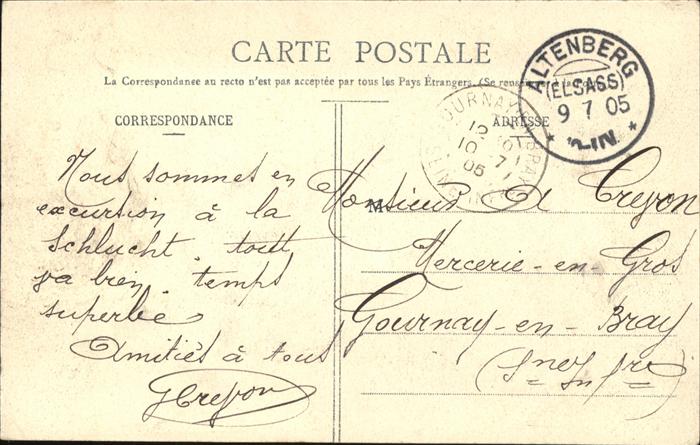 CARTE POSTALE
La Correspondance au recto n'est pas acceptée par tous les Pays Étrangers. (Se
CORRESPONDANCE
ADRESSE
ALTENBERG
(ELSASS)
9 7 05
GOURNAY
10 7
05
Nous sommes en
excursion à la
Schlucht. tout
va bien. temps
superbe
Amitiés à tous
GCrepon
M
Monsieur A Crepon
Mercerie-en-Gros
Gournay-en-Bray
(Sne Infre)